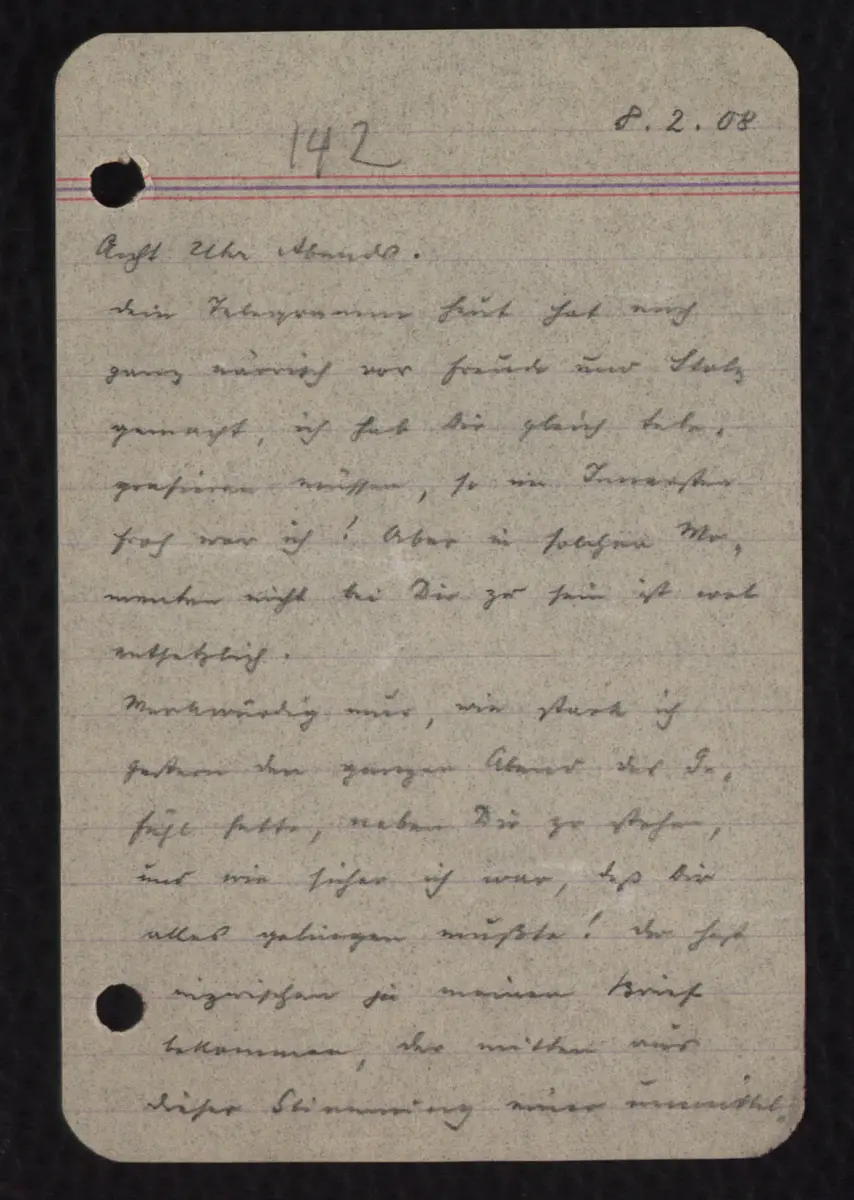 142
8. 2. 08
Acht Uhr Abends.
Dein Telegramm heut hat mich
ganz närrisch vor Freude und Stolz
gemacht, ich hab Dir gleich tele-
grafieren müssen, so im Innersten
froh war ich! Aber in solchen Mo-
menten nicht bei Dir zu sein ist
entsetzlich.
Merkwürdig nur, wie stark ich
gestern den ganzen Abend das Ge-
fühl hatte, neben Dir zu stehen,
und wie sicher ich war, daß Dir
alles gelingen mußte! Du hast
inzwischen ja meinen Brief
bekommen, der mitten aus
dieser Stimmung einer unmittel-